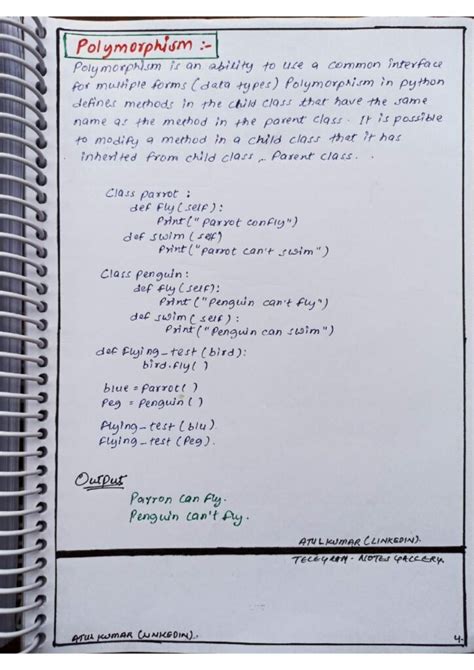 Polymorphism :-
Polymorphism is an ability to use a common interface
for multiple forms (data types) Polymorphism in python
defines methods in the child class that have the same
name as the method in the parent class. It is possible
to modify a method in a child class that it has
inherited from child class, Parent class.
Class parrot :
def fly (self) :
Print (" Parrot canfly")
def swim (self)
Print ("parrot can't swim")
Class Penguin :
def fly (self) :
Print ("Penguin can't fly")
def swim (self) :
Print ("Penguin can swim")
def flying_test (bird):
bird.fly( )
blue = Parrot( )
Peg = Penguin ( )
flying_test (blu)
flying_test (Peg).
Output
Parron can fly.
Penguin can't fly.
ATUL KUMAR (LINKEDIN).
TELEGRAM - NOTES GALLERY.
ATUL KUMAR (LINKEDIN).
4.